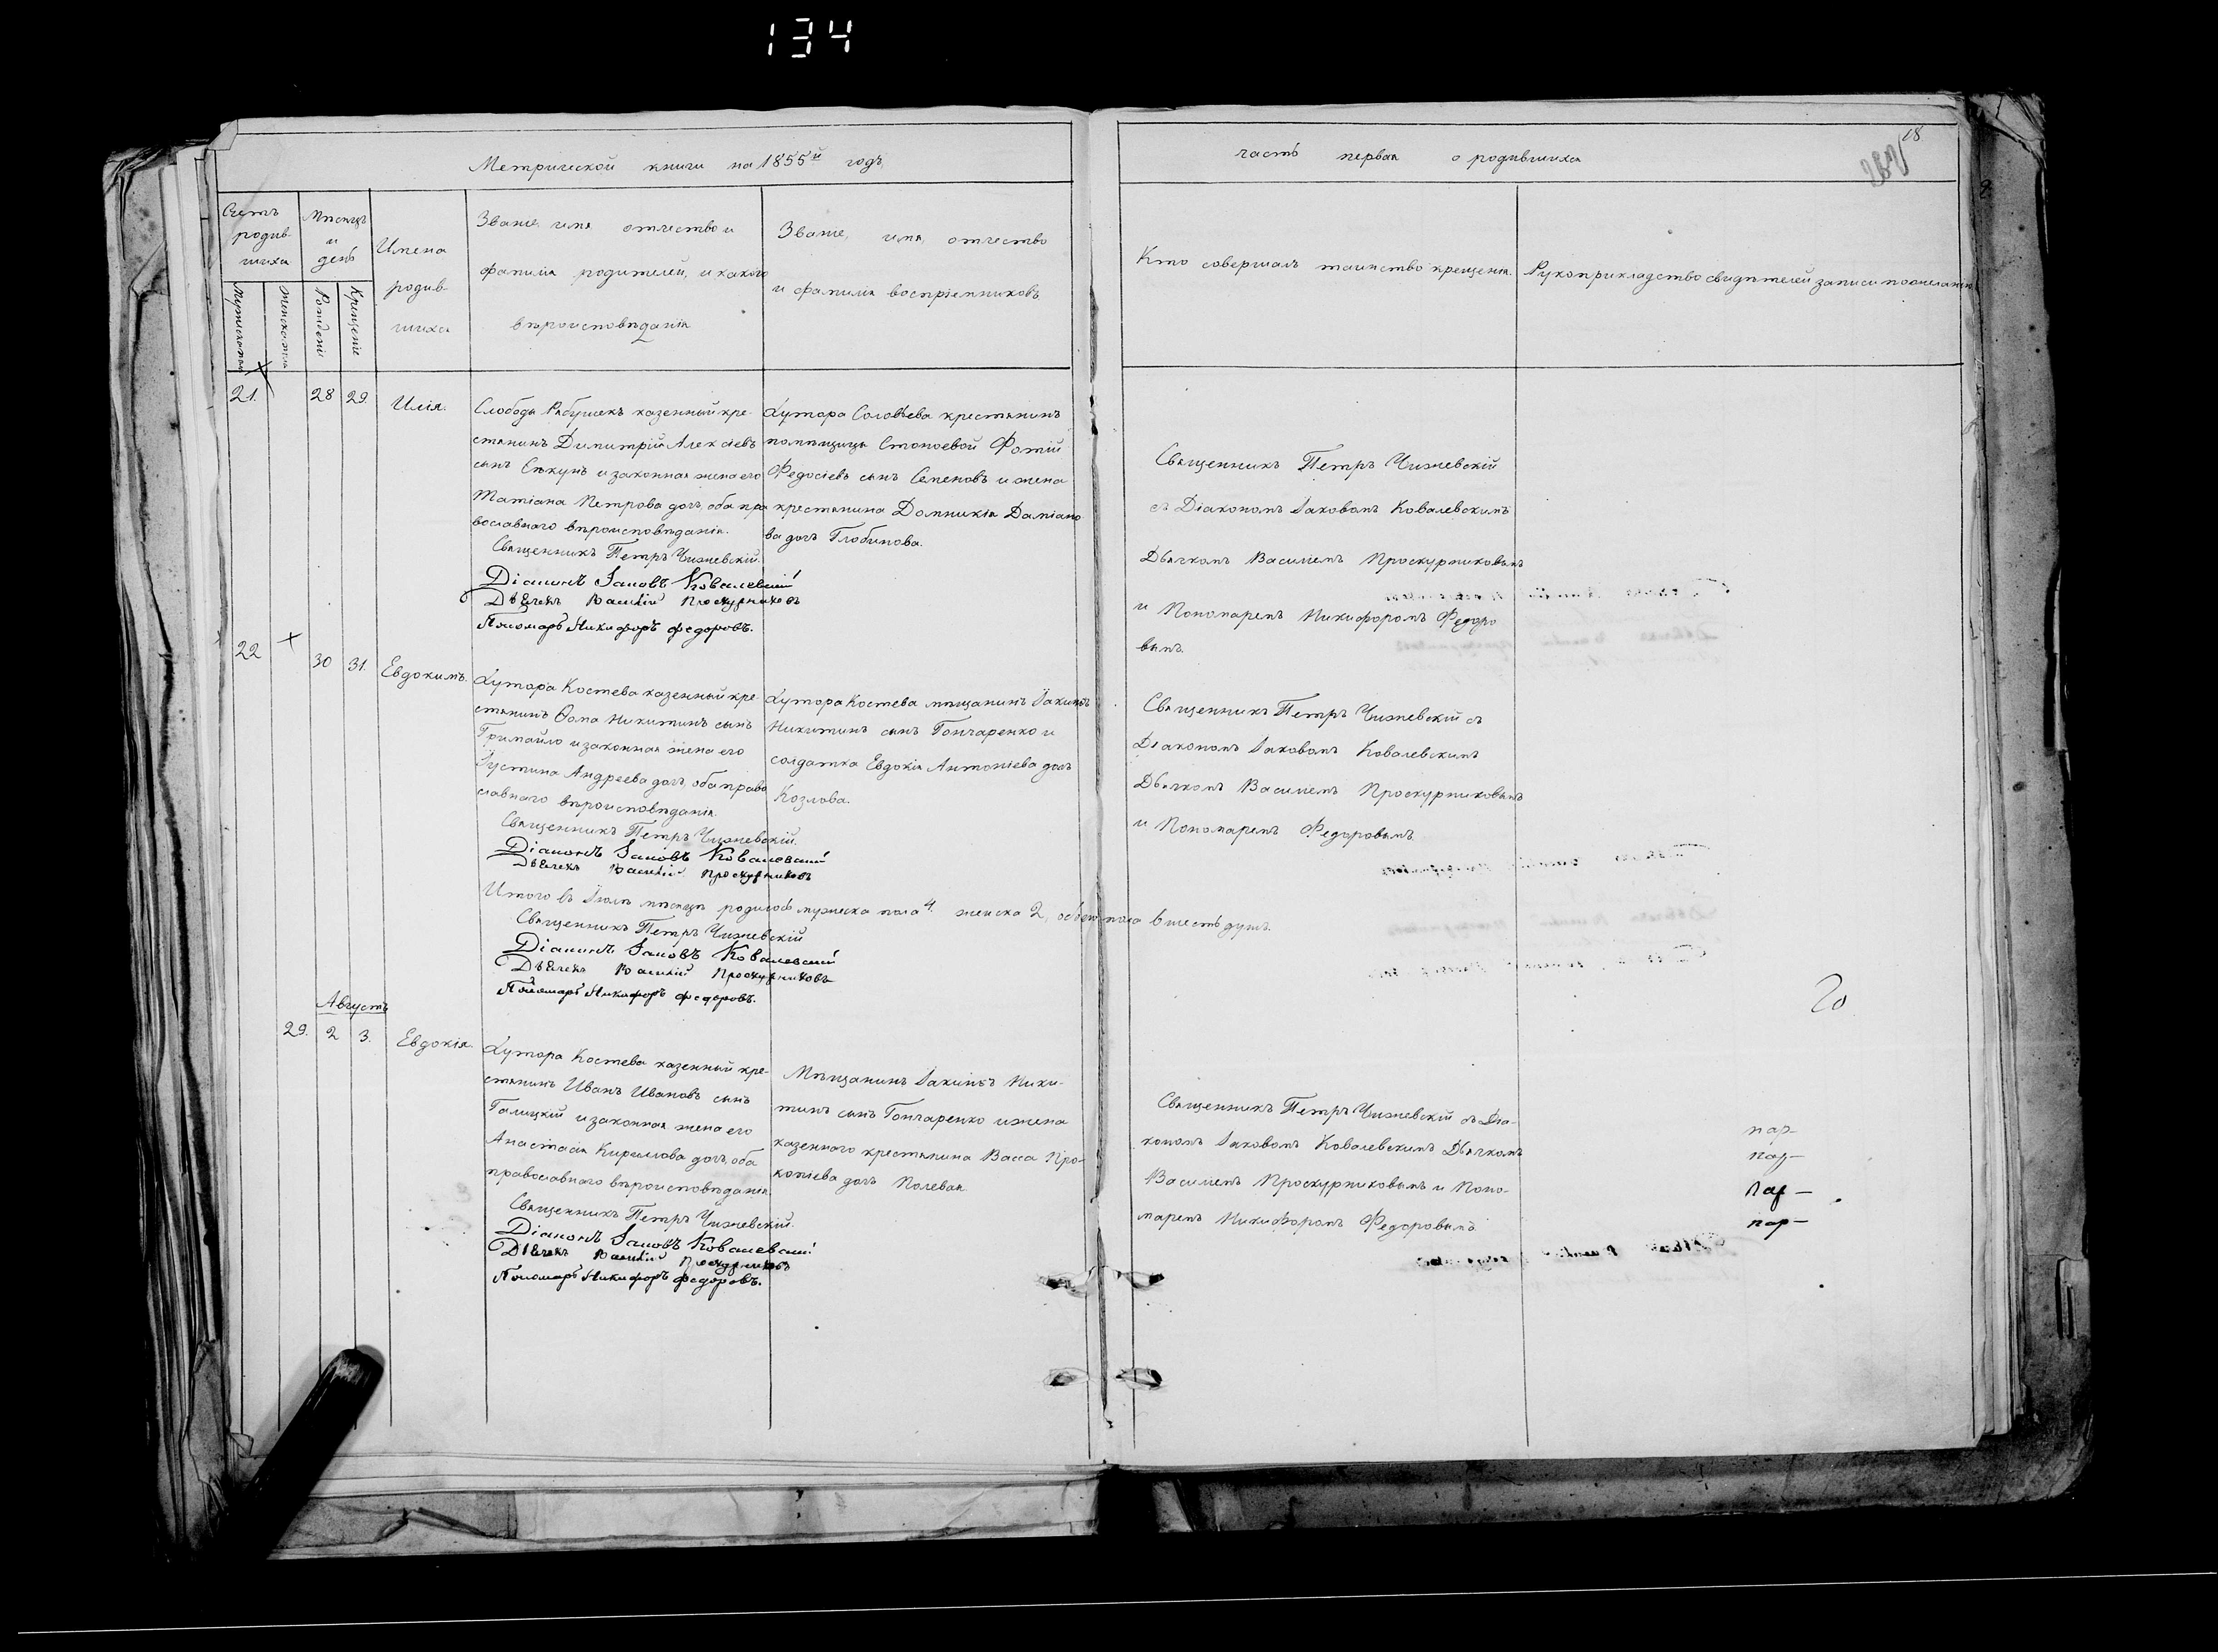 134
Метрической книги на 1855й годъ
часть первая о родившихся
18
Счетъ родив-шихся
Мѣсяцъ и день
Имена родив-шихся
Званіе, имя отчество и фамилія родителей, и какого вѣроисповѣданія
Званіе, имя, отчество и фамилія воспріемниковъ
Кто совершалъ таинство крещенія.
Рукоприкладство свидѣтелей записи по желанію
Мужеска пола
Женска пола
Рожденіе
Крещеніе
21. 28 29. Илія.
Слободы Рябушекъ казенный кре-
стянинъ Димитрій Алексіевъ
сынъ Сѣкунъ и законная жена его
Татіана Петрова дочь, оба пра
вославнаго вѣроисповѣданія.
Священникъ Петръ Чижевскій.
Діаконъ Іаковъ Ковалевскій
Дьячекъ Василій Проскурниковъ
Пономарь Никифоръ Федоровъ.
Хутора Соловьева крестянинъ
помѣщицы Фотій
Федосіевъ сынъ Семеновъ и жена
крестянина Домникія Даміано
ва дочь Глобинова.
Священникъ Петръ Чижевскій
съ Діакономъ Іаковомъ Ковалевскимъ
Дьячкомъ Василіемъ Проскурниковымъ
и Пономаремъ Никифоромъ Федоро
вымъ.
22 30 31. Евдокимъ.
Хутора Костева казенный кре-
стянинъ Ѳома Никитинъ сынъ
Гримайло и законная жена его
Іустина Андреева дочь, оба право
славнаго вѣроисповѣданія.
Священникъ Петръ Чижевскій.
Діаконъ Іаковъ Ковалевскій
Дьячекъ Василій Проскурниковъ
Хутора Костева мѣщанинъ Іакинѳъ
Никитинъ сынъ Гончаренко и
солдатка Евдокія Антоніева дочь
Козлова.
Священникъ Петръ Чижевскій съ
Діакономъ Іаковомъ Ковалевскимъ
Дьячкомъ Василіемъ Проскурниковымъ
и Пономаремъ Федоровымъ
Итого въ Іюлѣ мѣсяцѣ родилось мужеска пола 4. женска 2, обоего пола 6 шесть душъ.
Священникъ Петръ Чижевскій
Діаконъ Іаковъ Ковалевскій
Дьячекъ Василій Проскурниковъ
Пономарь Никифоръ Федоровъ.
20
Августъ
29. 2 3. Евдокія.
Хутора Костева казенный кре-
стянинъ Иванъ Ивановъ сынъ
Галицкій и законная жена его
Анастасія Кирилова дочь, оба
православнаго вѣроисповѣданія.
Священникъ Петръ Чижевскій.
Діаконъ Іаковъ Ковалевскій
Дьячекъ Василій Проскурниковъ
Пономарь Никифоръ Федоровъ.
Мѣщанинъ Іакинѳъ Ники-
тинъ сынъ Гончаренко и жена
казеннаго крестянина Васса Про-
копіева дочь Полевая
Священникъ Петръ Чижевскій съ Діа-
кономъ Іаковомъ Ковалевскимъ Дьячкомъ
Василіемъ Проскурниковымъ и Поно-
маремъ Никифоромъ Федоровымъ
пар-
пар-
пар-
пар-